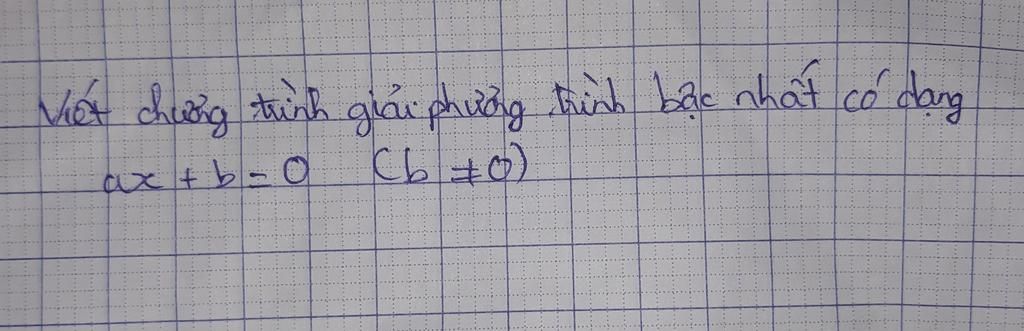 Viết chương trình giải phương trình bậc nhất có dạng
ax + b = 0 (b ≠ 0)